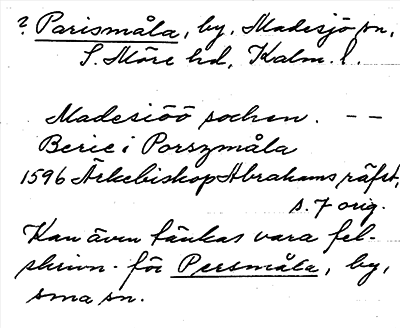 ? Parismåla, by, Madesjö sn,
S. Möre hd, Kalm. l.
Madesiöö sochen. - -
Beric i Porszmåla
1596 Ärkebiskop Abrahams räfst,
s. 7 orig.
Kan även tänkas vara fel-
skrivn. för Persmåla, by,
sma sn.